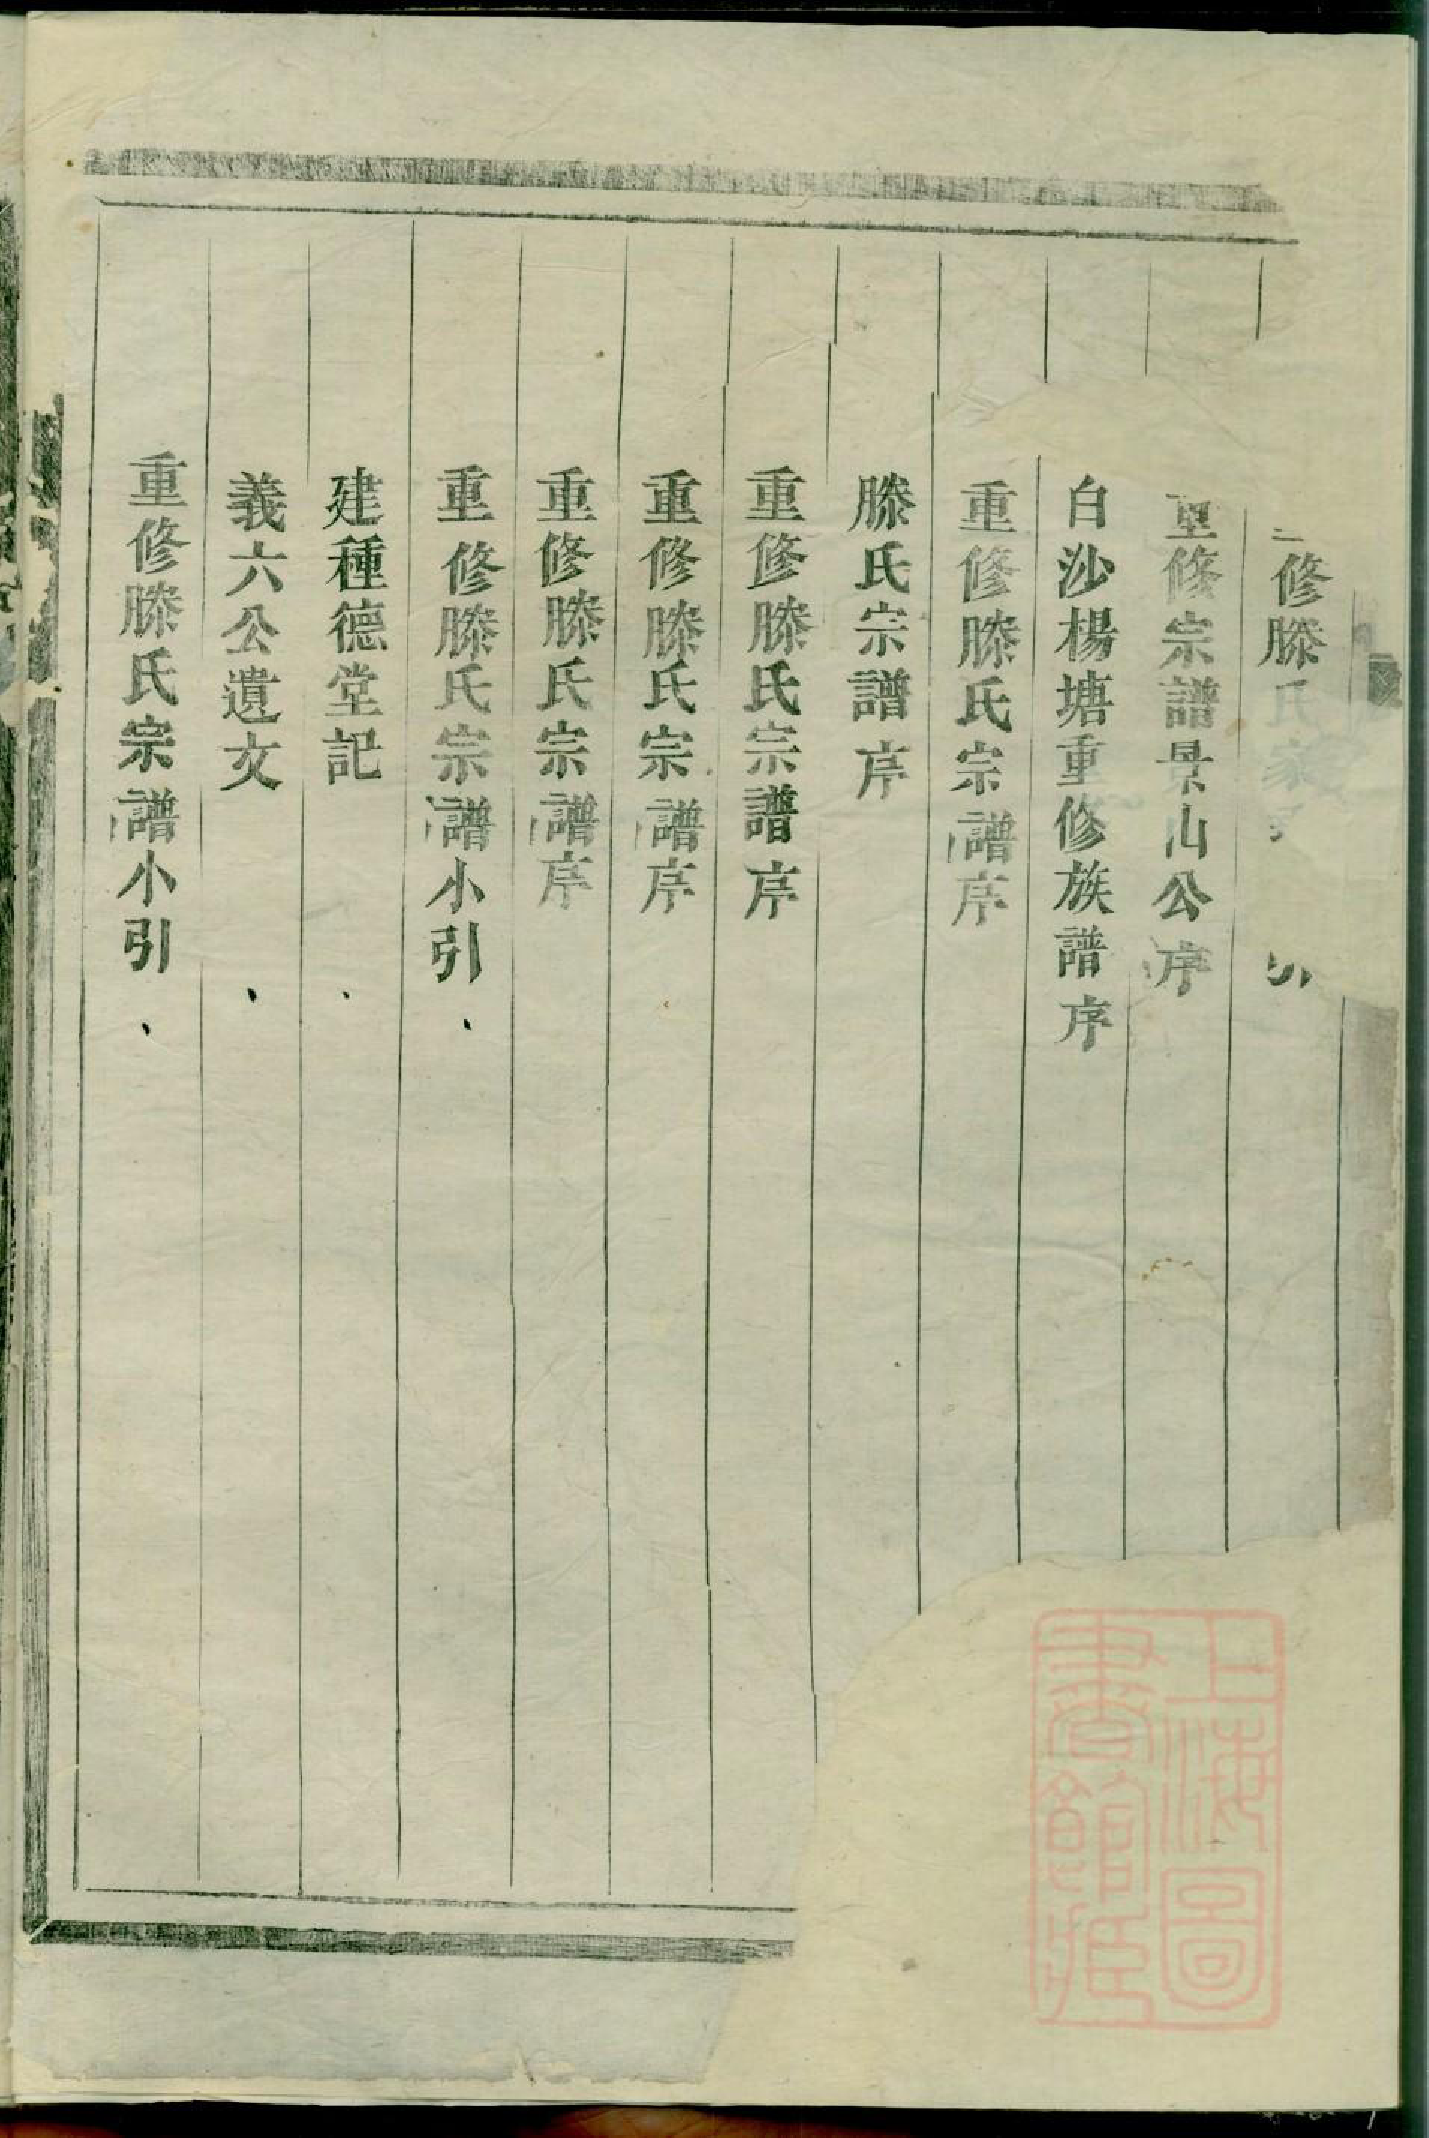 修滕氏家
重修宗譜景山公序
白沙楊塘重修族譜序
重修滕氏宗譜序
滕氏宗譜序
重修滕氏宗譜序
重修滕氏宗譜序
重修滕氏宗譜序
重修滕氏宗譜小引
建種德堂記
義六公遺文
重修滕氏宗譜小引
上海圖
書館藏